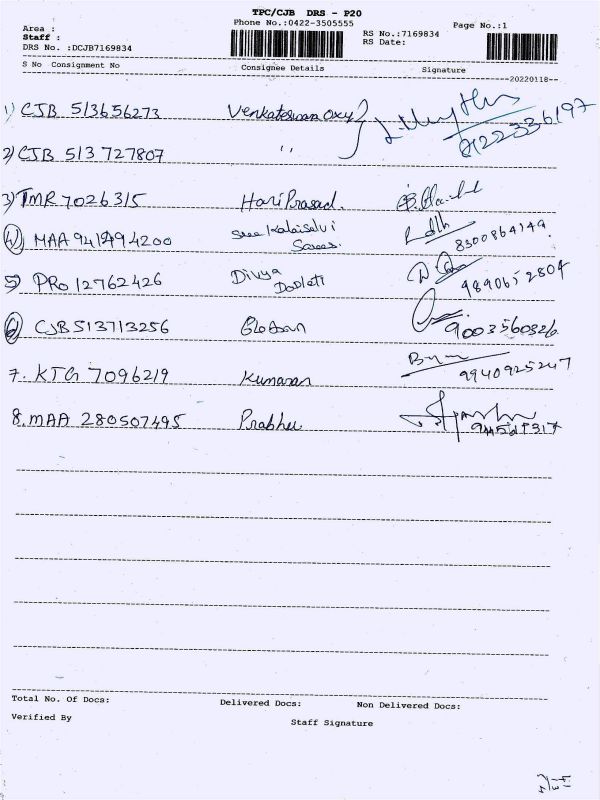 TPC/CJB DRS - P20
Area :
Phone No.:0422-3505555
Page No.:1
Staff :
RS No.:7169834
DRS No. :DCJB7169834
RS Date:
S No Consignment No Consignee Details Signature
--20220118--
1) CJB 513656273 Venkateswan oxy
0422336197
2) CJB 513 727807 ,,
3) TMR 7026315 Hari Prasad.
4) MAA 941494200 Sree Kalaiselvi
Sarees. 8300864149.
5) PRO 12762426 Divya
9890652804
6) CJB 513713256
9003560826
7. KTG 7096219 Kumaran
9940925247
8. MAA 280507495 Prabhu
Total No. Of Docs: Delivered Docs: Non Delivered Docs:
Verified By Staff Signature